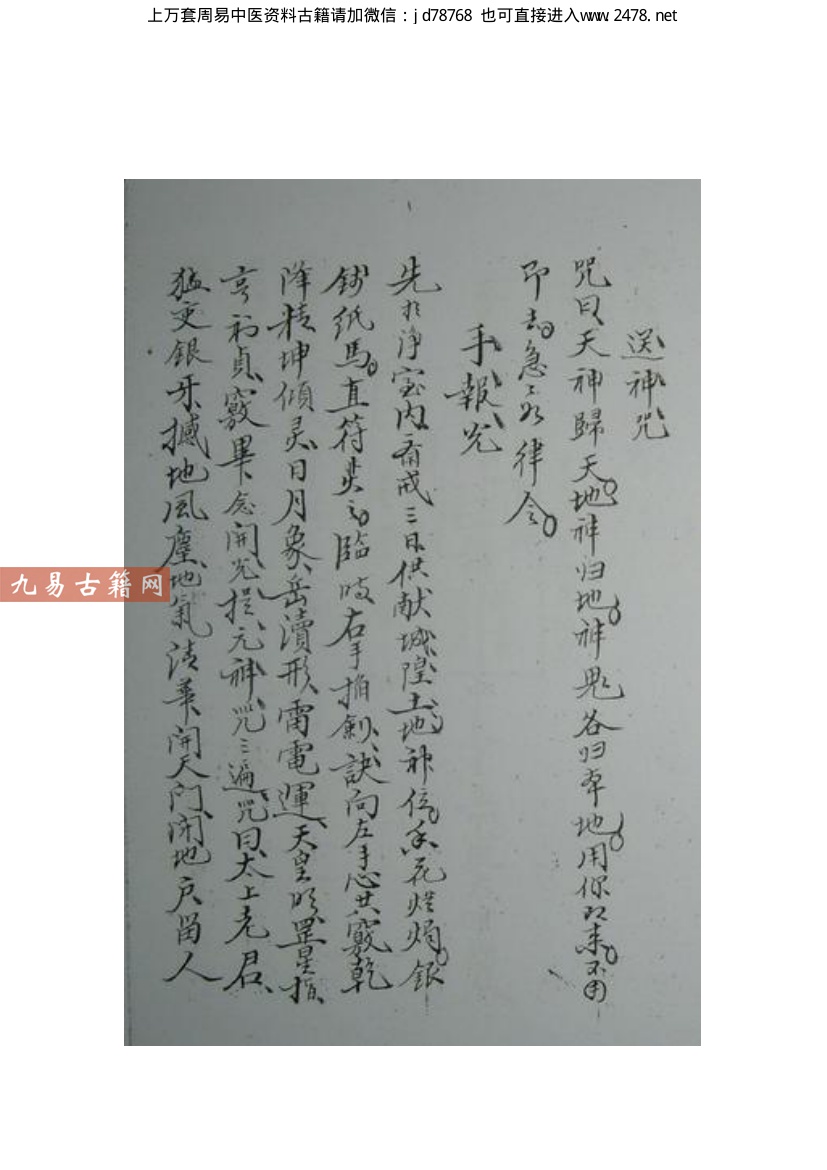 上万套周易中医资料古籍请加微信：jd78768 也可直接进入www.2478.net
送神咒
咒曰天神歸天地神归地神鬼各归本地用你即来不用
即去急〻如律令
手報光
先於净室内斋戒三日供献城隍土地神位香花灯烛银
钱纸馬直符焚之臨時右手掐劍訣向左手心共竅乾
降精坤傾灵日月象岳瀆形雷電運天皇明罡星指
亨利貞竅畢念開光捉元神咒三遍咒曰太上老君
猛吏銀牙撼地風塵地氣清華開天門闭地户留人
九易古籍网